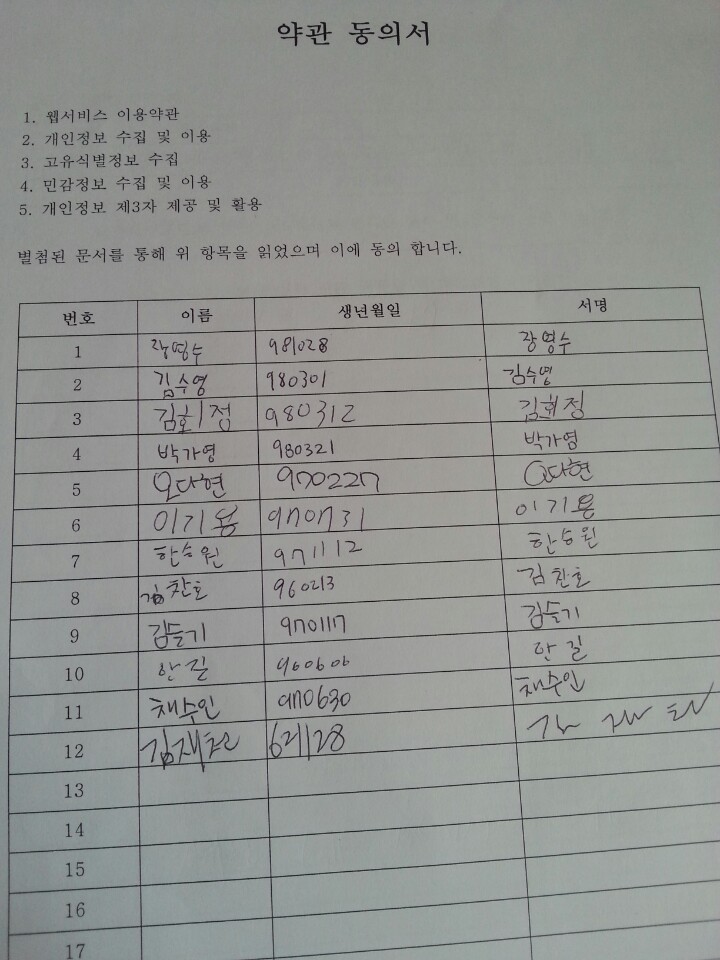 약관 동의서
1. 웹서비스 이용약관
2. 개인정보 수집 및 이용
3. 고유식별정보 수집
4. 민감정보 수집 및 이용
5. 개인정보 제3자 제공 및 활용
별첨된 문서를 통해 위 항목을 읽었으며 이에 동의 합니다.
번호 이름 생년월일 서명
1 장영수 981028 장영수
2 김수영 980301 김수영
3 김희정 980312 김희정
4 박가영 980321 박가영
5 오다현 970227 오다현
6 이기용 970731 이기용
7 한승원 971112 한승원
8 김찬호 960213 김찬호
9 김슬기 970117 김슬기
10 안길 960606 안길
11 채수인 970630 채수인
12 621128
13
14
15
16
17